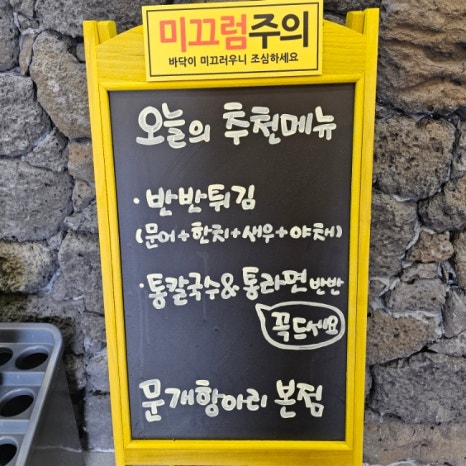 미끄럼주의
바닥이 미끄러우니 조심하세요
오늘의 추천메뉴
· 반반튀김
(문어+한치+새우+야채)
· 통칼국수&통라면 반반
꼭드세요
문개항아리 본점